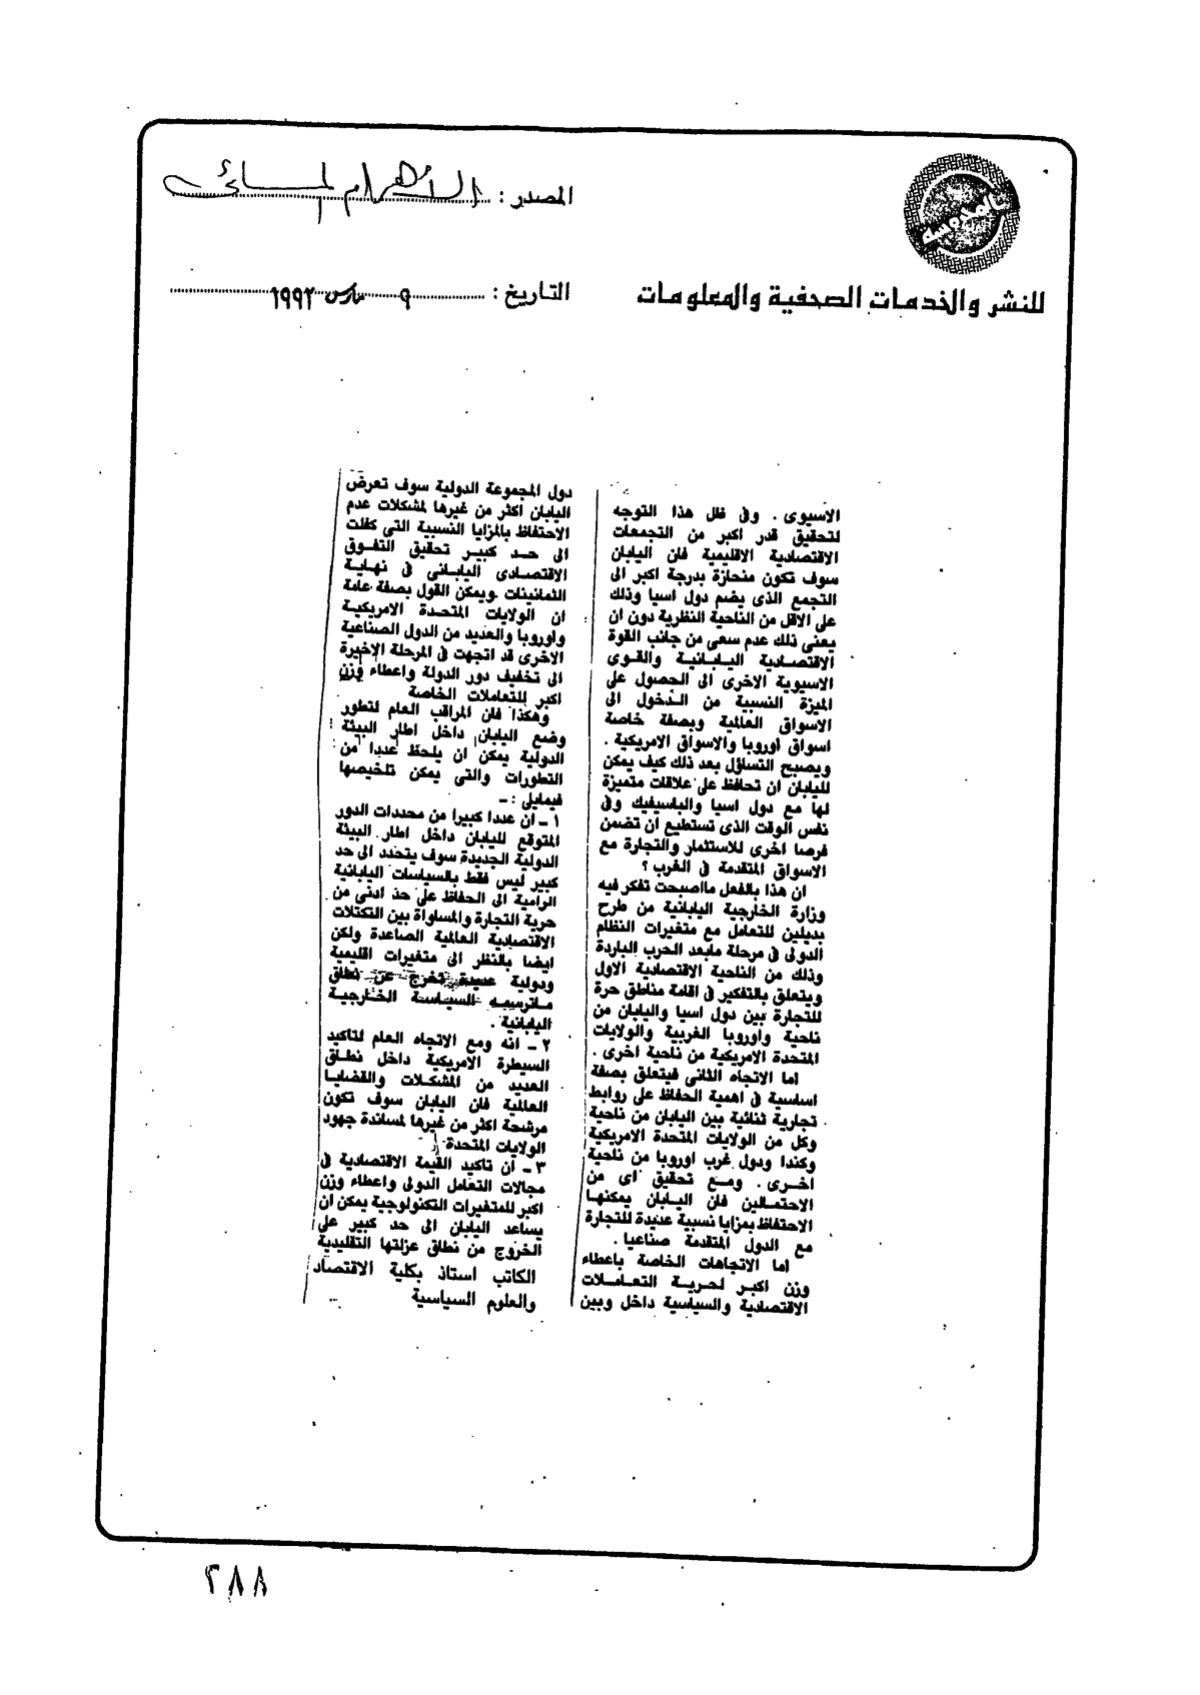 المصدر : الأهرام المسائى
للنشر والخدمات الصحفية والمعلومات
التاريخ : ٩ مارس ١٩٩٢
الاسيوى . وفى ظل هذا التوجه
لتحقيق قدر اكبر من التجمعات
الاقتصادية الاقليمية فان اليابان
سوف تكون منحازة بدرجة اكبر الى
التجمع الذى يضم دول اسيا وذلك
على الاقل من الناحية النظرية دون ان
يعنى ذلك عدم سعى من جانب القوة
الاقتصادية اليابانية والقوى
الاسيوية الاخرى الى الحصول على
الميزة النسبية من الدخول الى
الاسواق العالمية وبصفة خاصة
اسواق اوروبا والاسواق الامريكية .
ويصبح التساؤل بعد ذلك كيف يمكن
لليابان ان تحافظ على علاقات متميزة
لها مع دول اسيا والباسيفيك وفى
نفس الوقت الذى تستطيع ان تضمن
فرصا اخرى للاستثمار والتجارة مع
الاسواق المتقدمة فى الغرب ؟
ان هذا بالفعل مااصبحت تفكر فيه
وزارة الخارجية اليابانية من طرح
بديلين للتعامل مع متغيرات النظام
الدولى فى مرحلة مابعد الحرب الباردة
وذلك من الناحية الاقتصادية الاول
ويتعلق بالتفكير فى اقامة مناطق حرة
للتجارة بين دول اسيا واليابان من
ناحية واوروبا الغربية والولايات
المتحدة الامريكية من ناحية اخرى .
اما الاتجاه الثانى فيتعلق بصفة
اساسية فى اهمية الحفاظ على روابط
تجارية ثنائية بين اليابان من ناحية
وكل من الولايات المتحدة الامريكية
وكندا ودول غرب اوروبا من ناحية
اخرى . ومع تحقيق اى من
الاحتمالين فان اليابان يمكنها
الاحتفاظ بمزايا نسبية عديدة للتجارة
مع الدول المتقدمة صناعيا .
اما الاتجاهات الخاصة باعطاء
وزن اكبر لحرية التعاملات
الاقتصادية والسياسية داخل وبين
دول المجموعة الدولية سوف تعرض
اليابان اكثر من غيرها لمشكلات عدم
الاحتفاظ بالمزايا النسبية التى كفلت
الى حد كبير تحقيق التفوق
الاقتصادى اليابانى فى نهاية
الثمانينات ويمكن القول بصفة عامة
ان الولايات المتحدة الامريكية
واوروبا والعديد من الدول الصناعية
الاخرى قد اتجهت فى المرحلة الاخيرة
الى تخفيف دور الدولة واعطاء وزن
اكبر للتعاملات الخاصة
وهكذا فان المراقب العام لتطور
وضع اليابان داخل اطار البيئة
الدولية يمكن ان يلحظ عددا من
التطورات والتى يمكن تلخيصها
فيمايلى : –
١ – ان عددا كبيرا من محددات الدور
المتوقع لليابان داخل اطار البيئة
الدولية الجديدة سوف يتحدد الى حد
كبير ليس فقط بالسياسات اليابانية
الرامية الى الحفاظ على حد ادنى من
حرية التجارة والمساواة بين التكتلات
الاقتصادية العالمية الصاعدة ولكن
ايضا بالنظر الى متغيرات اقليمية
ودولية عديدة تخرج عن نطاق
ماترسمه السياسة الخارجية
اليابانية .
٢ – انه ومع الاتجاه العام لتاكيد
السيطرة الامريكية داخل نطاق
العديد من المشكلات والقضايا
العالمية فان اليابان سوف تكون
مرشحة اكثر من غيرها لمساندة جهود
الولايات المتحدة .
٣ – ان تاكيد القيمة الاقتصادية فى
مجالات التعامل الدولى واعطاء وزن
اكبر للمتغيرات التكنولوجية يمكن ان
يساعد اليابان الى حد كبير على
الخروج من نطاق عزلتها التقليدية
الكاتب استاذ بكلية الاقتصاد
والعلوم السياسية
٢٨٨